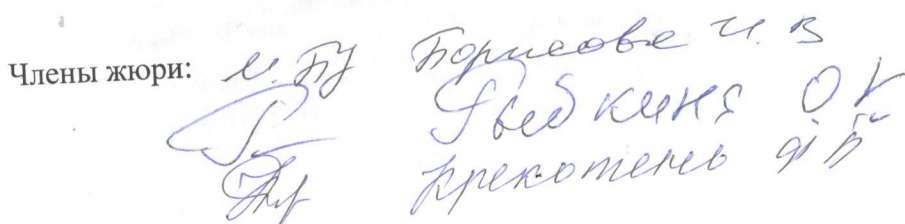 Члены жюри: Борисова И. В
Рыбкина О
Крекотень